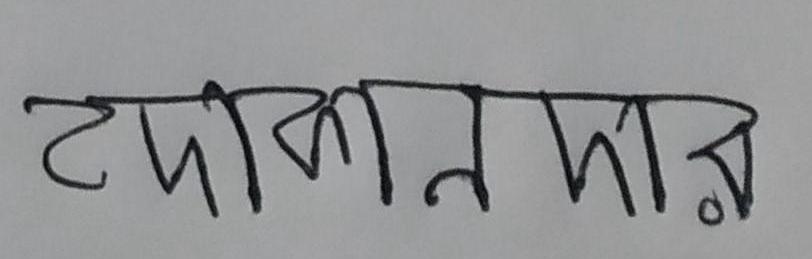 দোকানদার